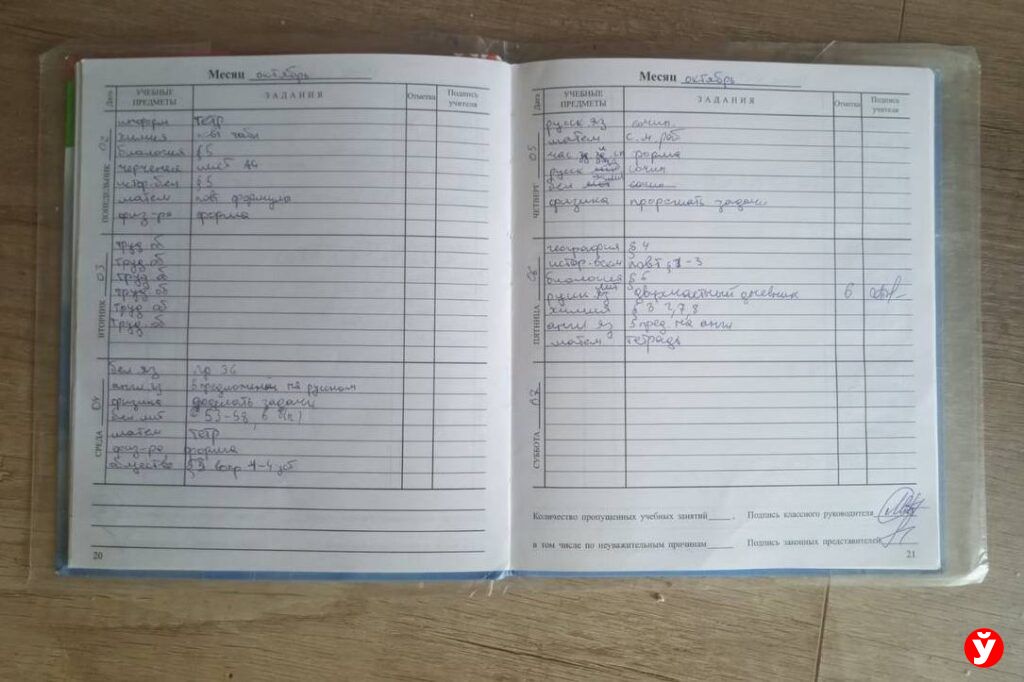 Месяц октябрь
Дата УЧЕБНЫЕ ПРЕДМЕТЫ ЗАДАНИЯ Отметка Подпись учителя
ПОНЕДЕЛЬНИК 02
информ тетр
химия повт табл
биология § 5
черчение лист А4
истор. бел § 5
матем повт формулы
физ-ра форма
ВТОРНИК 03
труд об
труд об
труд об
труд об
труд об
труд об
СРЕДА 04
бел яз упр 36
англ яз 5 предложений на русском
физика доделать задачи
бел лит с 53-58, в
матем тетр
физ-ра форма
общество § 3 вопр 1-4 уст
20
Месяц октябрь
Дата УЧЕБНЫЕ ПРЕДМЕТЫ ЗАДАНИЯ Отметка Подпись учителя
ЧЕТВЕРГ 05
русск яз сочин
матем с. м. раб
час форма
русск сочин
бел сочин
физика прорешать задачи
ПЯТНИЦА 06
география § 4
истор. всем повт § 1-3
биология § 6
русск лит двухчастный дневник 6
химия § 3 2,7,8
англ яз 5 пред. на англ
матем тетрадь
СУББОТА 07
Количество пропущенных учебных занятий . Подпись классного руководителя
в том числе по неуважительным причинам Подпись законных представителей
21
Ў